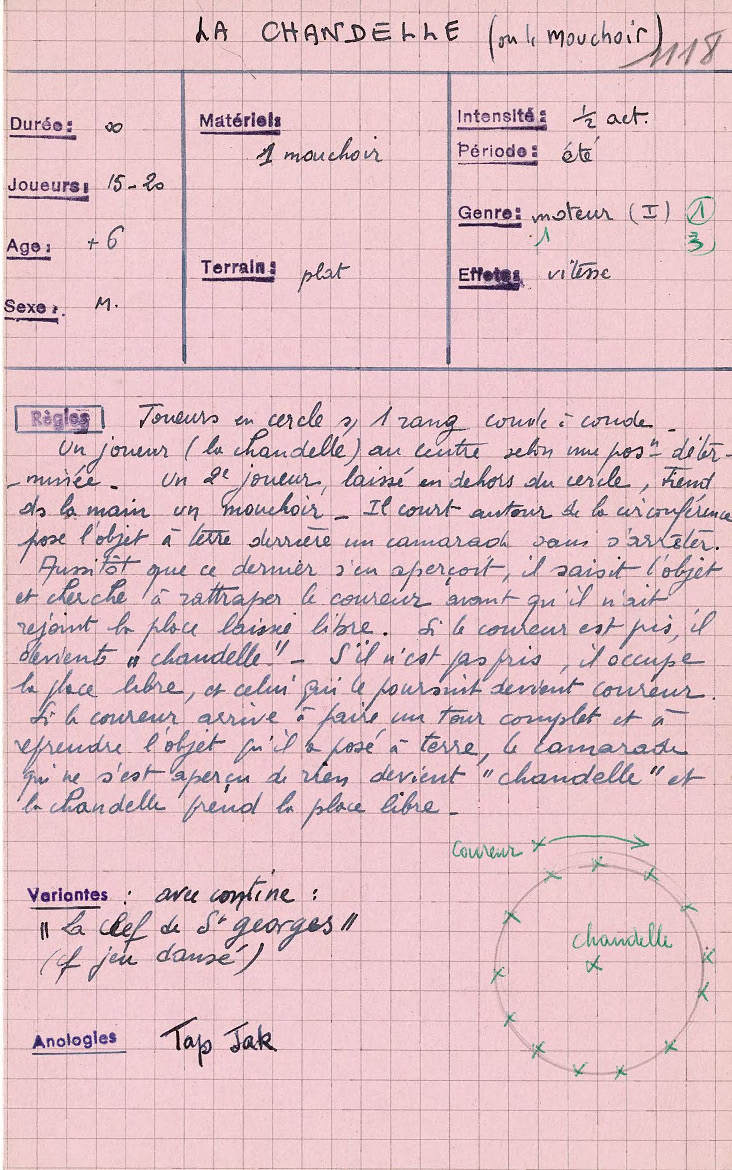 LA CHANDELLE (ou le mouchoir)
1118
Durée: ∞
Joueurs: 15-20
Age: +6
Sexe: M.
Matériel:
1 mouchoir
Terrain: plat
Intensité: ½ act.
Période: été
Genre: moteur (I) 1
1 3
Effets: vitesse
Règles Joueurs en cercle s/ 1 rang coude à coude.
Un joueur (la chandelle) au centre selon une posn déter-
-minée. Un 2e joueur, laissé en dehors du cercle, tient
ds la main un mouchoir. Il court autour de la circonférence
pose l'objet à terre derrière un camarade sans s'arrêter.
Aussitôt que ce dernier s'en aperçoit, il saisit l'objet
et cherche à rattraper le coureur avant qu'il n'ait
rejoint la place laissée libre. Si le coureur est pris, il
devient "chandelle". S'il n'est pas pris, il occupe
la place libre, et celui qui le poursuit devient coureur.
Si le coureur arrive à faire un tour complet et à
reprendre l'objet qu'il a posé à terre, le camarade
qui ne s'est aperçu de rien devient "chandelle" et
la chandelle prend la place libre.
Coureur
chandelle
Variantes : avec comptine :
"La clef de St georges"
(cf jeu dansé)
Analogies Tap Jak